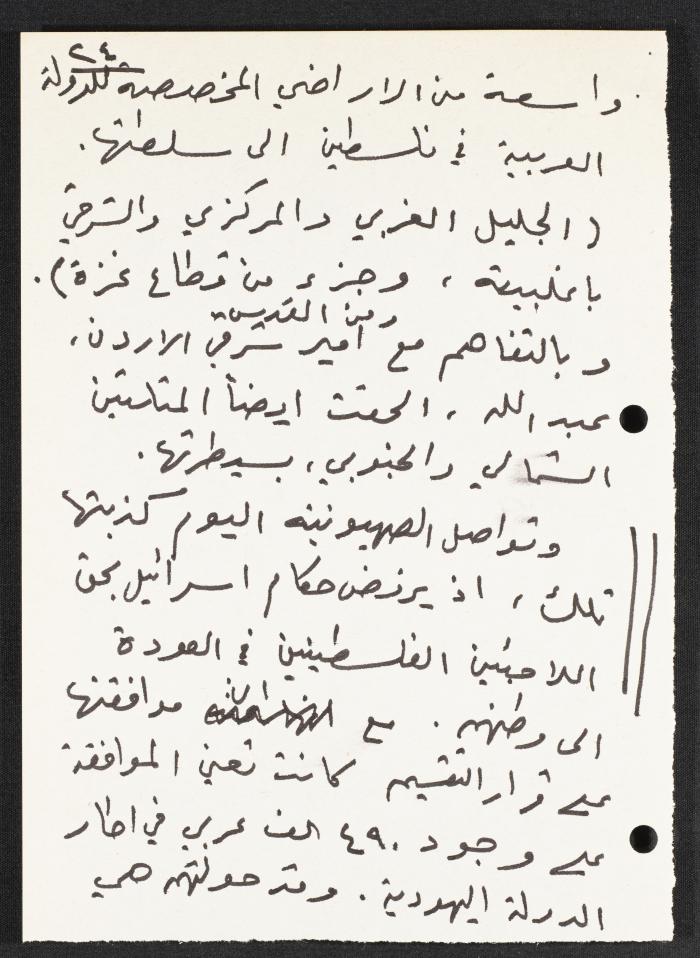 ٢٤
واسعة من الاراضي المخصصة للدولة
العربية في فلسطين الى سلطتها.
(الجليل الغربي والمركزي والشرقي
بأغلبيته، وجزء من قطاع غزة).
ومن القدس
وبالتفاهم مع امير شرقي الاردن،
عبد الله، الحقت ايضاً المثلثين
الشمالي والجنوبي، بسيطرتها.
وتواصل الصهيونية اليوم كذبتها
تلك، اذ يرفض حكام اسرائيل بحق
اللاجئين الفلسطينيين في العودة
الى وطنهم. مع ان موافقتها
على قرار التقسيم كانت تعني الموافقة
على وجود ٤٩٠ الف عربي في اطار
الدولة اليهودية. وقد حولتهم هي